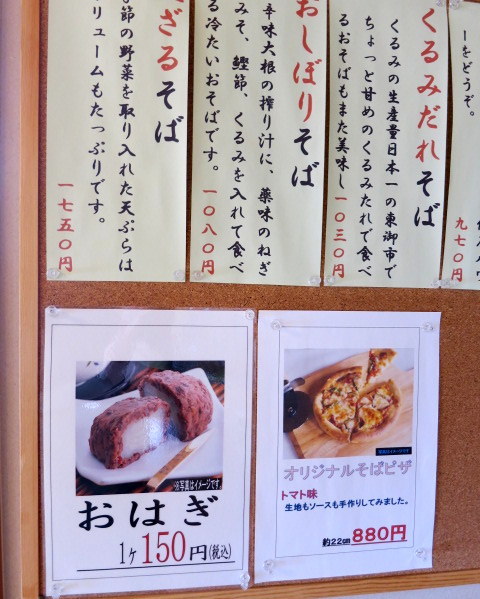 ーをどうぞ。
九七〇円
くるみだれそば
くるみの生産量日本一の東御市で
ちょっと甘めのくるみだれで食べ
るおそばもまた美味し
一〇三〇円
おしぼりそば
辛味大根の搾り汁に、薬味のねぎ
みそ、鰹節、くるみを入れて食べ
る冷たいおそばです。
一〇八〇円
ざるそば
季節の野菜を取り入れた天ぷらは
リュームもたっぷりです。
一七五〇円
※写真はイメージです
おはぎ
1ヶ150円(税込)
オリジナルそばピザ
トマト味
生地もソースも手作りしてみました。
約22cm 880円